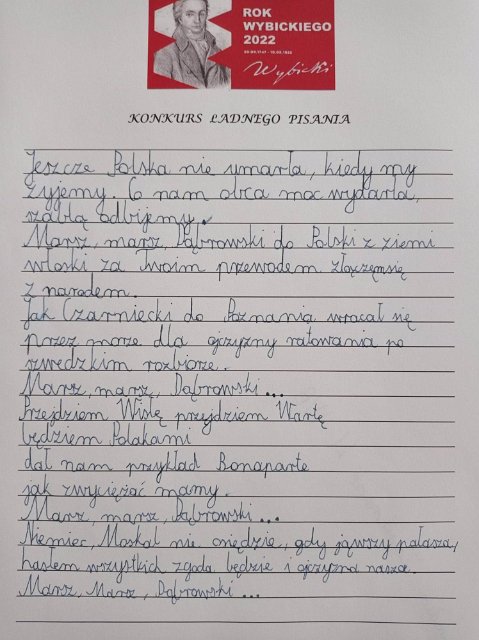 ROK
WYBICKIEGO
2022
Wybicki
KONKURS ŁADNEGO PISANIA
Jeszcze Polska nie umarła, kiedy my
żyjemy. Co nam obca moc wydarła,
szablą odbijemy.
Marsz, marsz, Dąbrowski do Polski z ziemi
włoski za Twoim przewodem złączęmsię
z narodem.
Jak Czarniecki do Poznania wracał się
przez morze dla ojczyzny ratowania po
szwedzkim rozbiorze.
Marsz, marsz, Dąbrowski...
Przejdziem Wisłę przejdziem Wartę
będziem Polakami
dał nam przykład Bonaparte
jak zwyciężać mamy.
Marsz, marsz, Dąbrowski...
Niemiec, Moskal nie osiędzie, gdy jąwszy pałasza,
hasłem wszystkich zgoda będzie i ojczyzna nasza.
Marsz, Marsz, Dąbrowski...